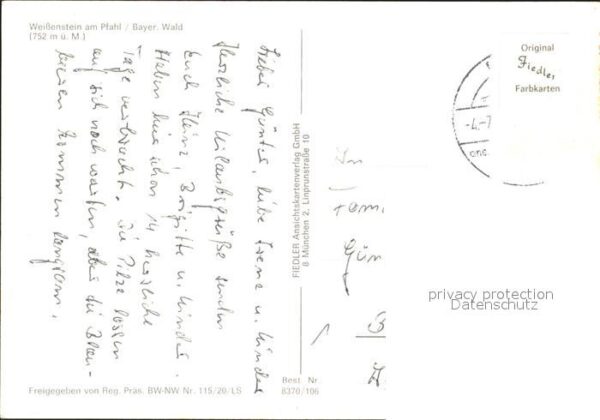 Weißenstein am Pfahl / Bayer. Wald
(752 m ü. M.)
Lieber Günter, liebe Irene u. Kinder
Herzliche Urlaubsgrüße senden
Euch Heinz, Brigitte u. Kinder.
Haben hier schon 14 herrliche
Tage verbracht. Die Pilze lassen
auf sich noch warten, aber die Blau-
beeren kommen langsam.
FIEDLER Ansichtskartenverlag GmbH
8 München 2, Linprunstraße 10
Original
Fiedler
Farbkarten
An
Fam.
Gün
privacy protection
Datenschutz
Freigegeben von Reg. Präs. BW-NW Nr. 115/20/LS
Best Nr
8370/106